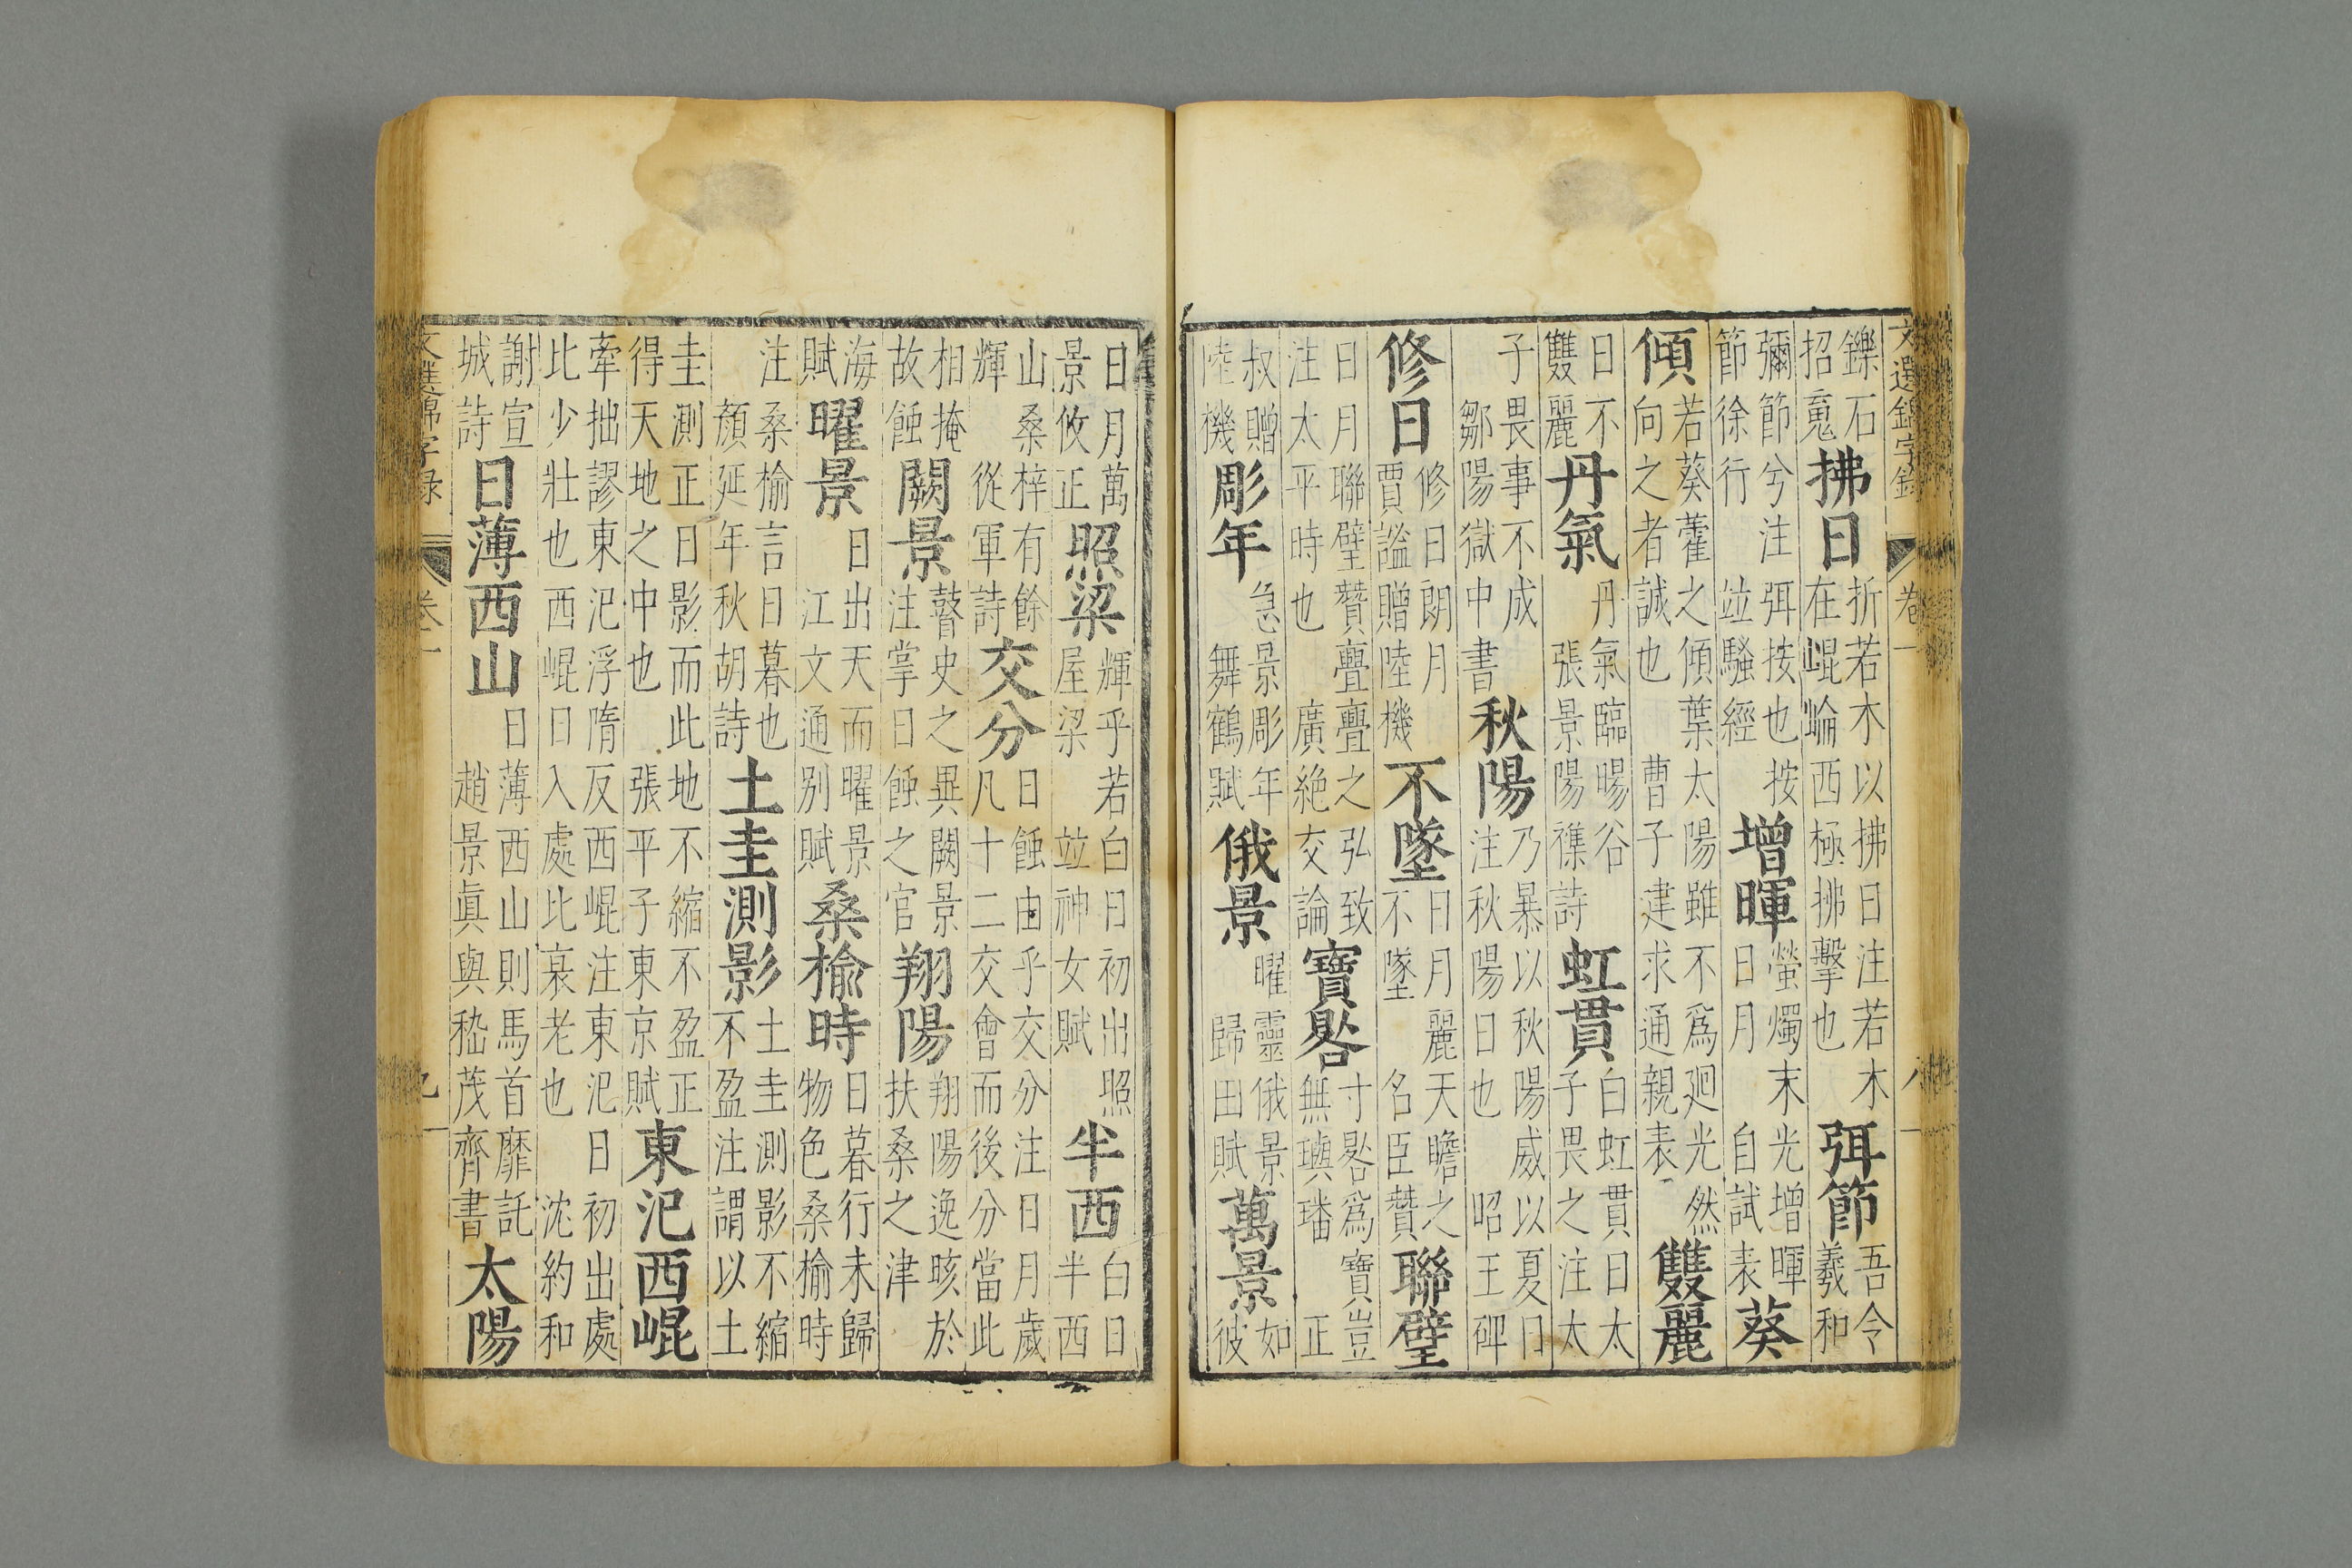 文選錦字錄 卷一 八
鑠石招䰟拂日折若木以拂日注若木在崐崘西極拂擊也弭節吾令羲和
彌節兮注弭按也按節徐行竝騷經增暉螢燭末光增暉日月自試表葵
傾若葵藿之傾葉太陽雖不爲廻光然向之者誠也曹子建求通親表雙麗
日不雙麗丹氣丹氣臨暘谷張景陽襍詩虹貫白虹貫日太子畏之注太
子畏事不成鄒陽獄中書秋陽乃暴以秋陽威以夏日注秋陽日也昭王碑
修日修日朗月賈謐贈陸機不墜日月麗天瞻之不墜名臣贊聯璧
日月聯璧贊亹亹之弘致注太平時也廣絶交論寶晷寸晷爲寶豈無璵璠正
叔贈陸機彫年急景彫年舞鶴賦俄景曜靈俄景歸田賦萬景如彼
日月萬景攸正照梁輝乎若白日初出照屋梁竝神女賦半西白日半西
山桑梓有餘輝從軍詩交分日蝕由乎交分注日月歲凡十二交會而後分當此
相掩故蝕闕景瞽史之異闕景注掌日蝕之官翔陽翔陽逸晐於扶桑之津
海賦曜景日出天而曜景江文通别賦桑榆時日暮行未歸物色桑榆時
注桑榆言日暮也顏延年秋胡詩土圭測影土圭測影不縮不盈注謂以土
圭測正日影而此地不縮不盈正得天地之中也張平子東京賦東汜西崐
牽拙謬東汜浮隋反西崐注東汜日初出處比少壯也西崐日入處比衰老也沈約和
謝宣城詩日薄西山日薄西山則馬首靡託趙景眞與嵇茂齊書太陽
文選錦字錄 卷一